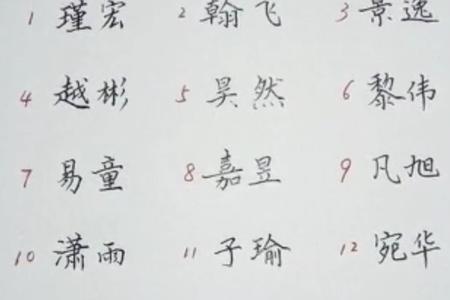 1 瑾宏 2 翰飞 3 景逸
4 越彬 5 昊然 6 黎伟
7 易童 8 嘉昱 9 凡旭
10 潇雨 11 子瑜 12 宛华